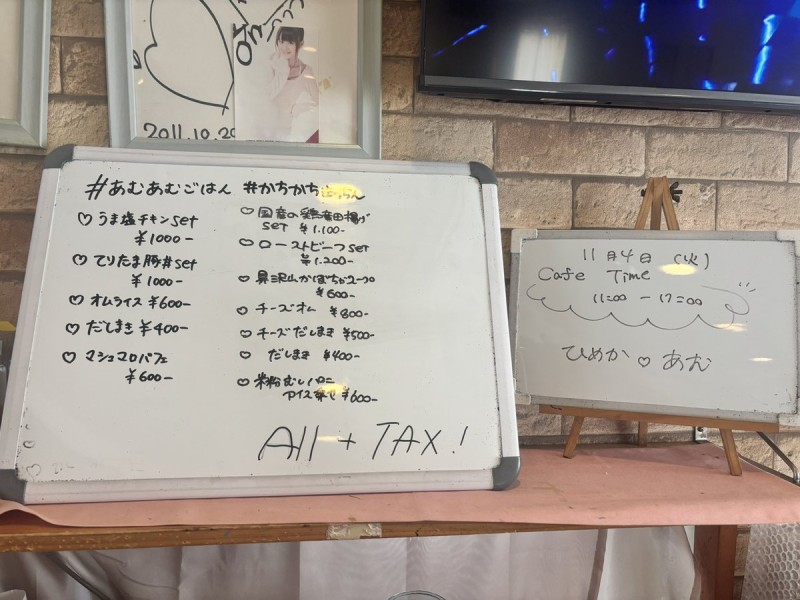 2011.10.20
#あむあむごはん #かちかち
♡ うま塩チキンset
¥1000-
♡ てりたま豚丼set
¥1000-
♡ オムライス ¥600-
♡ だしまき ¥400-
♡ マシュマロパフェ
¥600-
♡ 国産の鶏竜田揚げ
set ¥1.100-
♡ ローストビーフset
¥1.200-
♡ 具沢山かぼちゃスープ
¥600-
♡ チーズオム ¥800-
♡ チーズだしまき ¥500-
♡ だしまき ¥400-
♡ 米粉むしパン
アイス ¥600-
All + TAX!
11月4日 (火)
Cafe Time
11:00 - 17:00
ひめか ♡ あむ